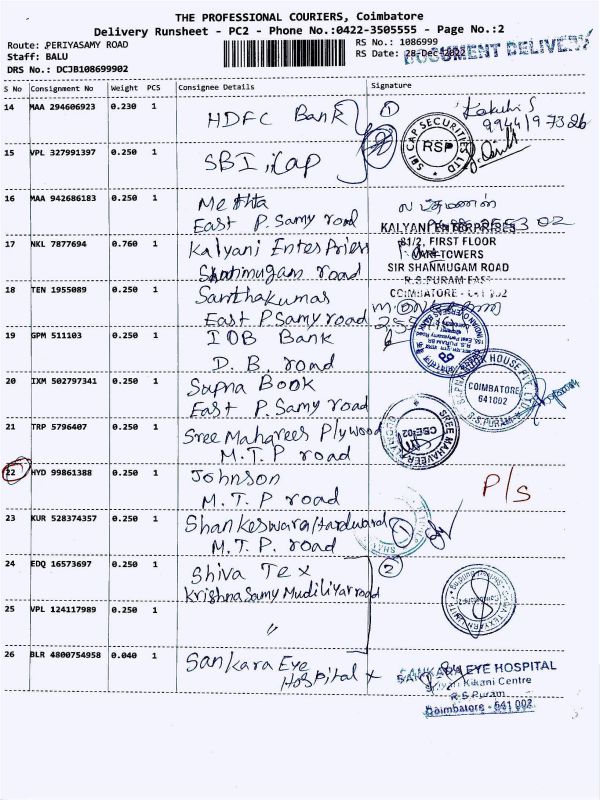 THE PROFESSIONAL COURIERS, Coimbatore
Delivery Runsheet - PC2 - Phone No.:0422-3505555 - Page No.:2
Route: PERIYASAMY ROAD
Staff: BALU
DRS No.: DCJB108699902
RS No.: 1086999
RS Date: 28-Dec-2022
DOCUMENT DELIVERY
S No Consignment No Weight PCS Consignee Details Signature
14 MAA 294606923 0.230 1 HDFC Bank 1
9944197326
15 VPL 327991397 0.250 1 SBI Cap
SBI CAP SECURITIES LTD
RSP
16 MAA 942686183 0.250 1 Mettta
East P. Samy road
17 NKL 7877694 0.760 1 Kalyani EntesPriess
Shanmugam road
KALYANI ENTERPRISES
81/2, FIRST FLOOR
TOWERS
SIR SHANMUGAM ROAD
R.S.PURAM EAST
COIMBATORE - 641 002
18 TEN 1955089 0.250 1 Santhakumas
East P. Samy road
19 GPM 511103 0.250 1 IOB Bank
D. B. road
20 IXM 502797341 0.250 1 Sapna Book
East P. Samy road
BOOK HOUSE PVT. LTD.
COIMBATORE
641002
R.S.PURAM
21 TRP 5796407 0.250 1 Sree Mahavees Plywood
M.T.P road
SREE MAHAVEER
CBE-02
22 HYD 99861388 0.250 1 Johnson
M.T.P road
P/S
23 KUR 528374357 0.250 1 Shankeswara Hardward 1
M.T.P. road
24 EDQ 16573697 0.250 1 Shiva Tex 2
Krishna Samy Mudiliyar road
25 VPL 124117989 0.250 1 "
26 BLR 4800754958 0.040 1 Sankara Eye
Hospital
SANKARA EYE HOSPITAL
Kikani Centre
R.S.Puram
Coimbatore - 641 002